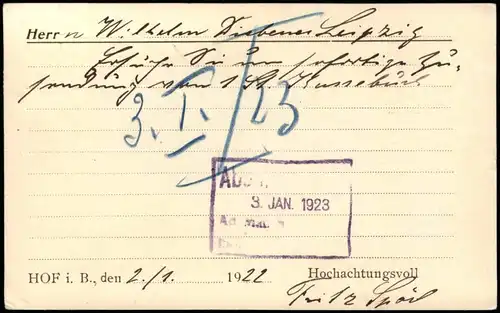 Herrn Wilhelm Diebener Leipzig
Ersuche Sie um sofortige Zu-
sendung von 1 St. Kassebuch
3. I. 23
3. JAN. 1923
HOF i. B., den 2./1. 1922 Hochachtungsvoll
Fritz